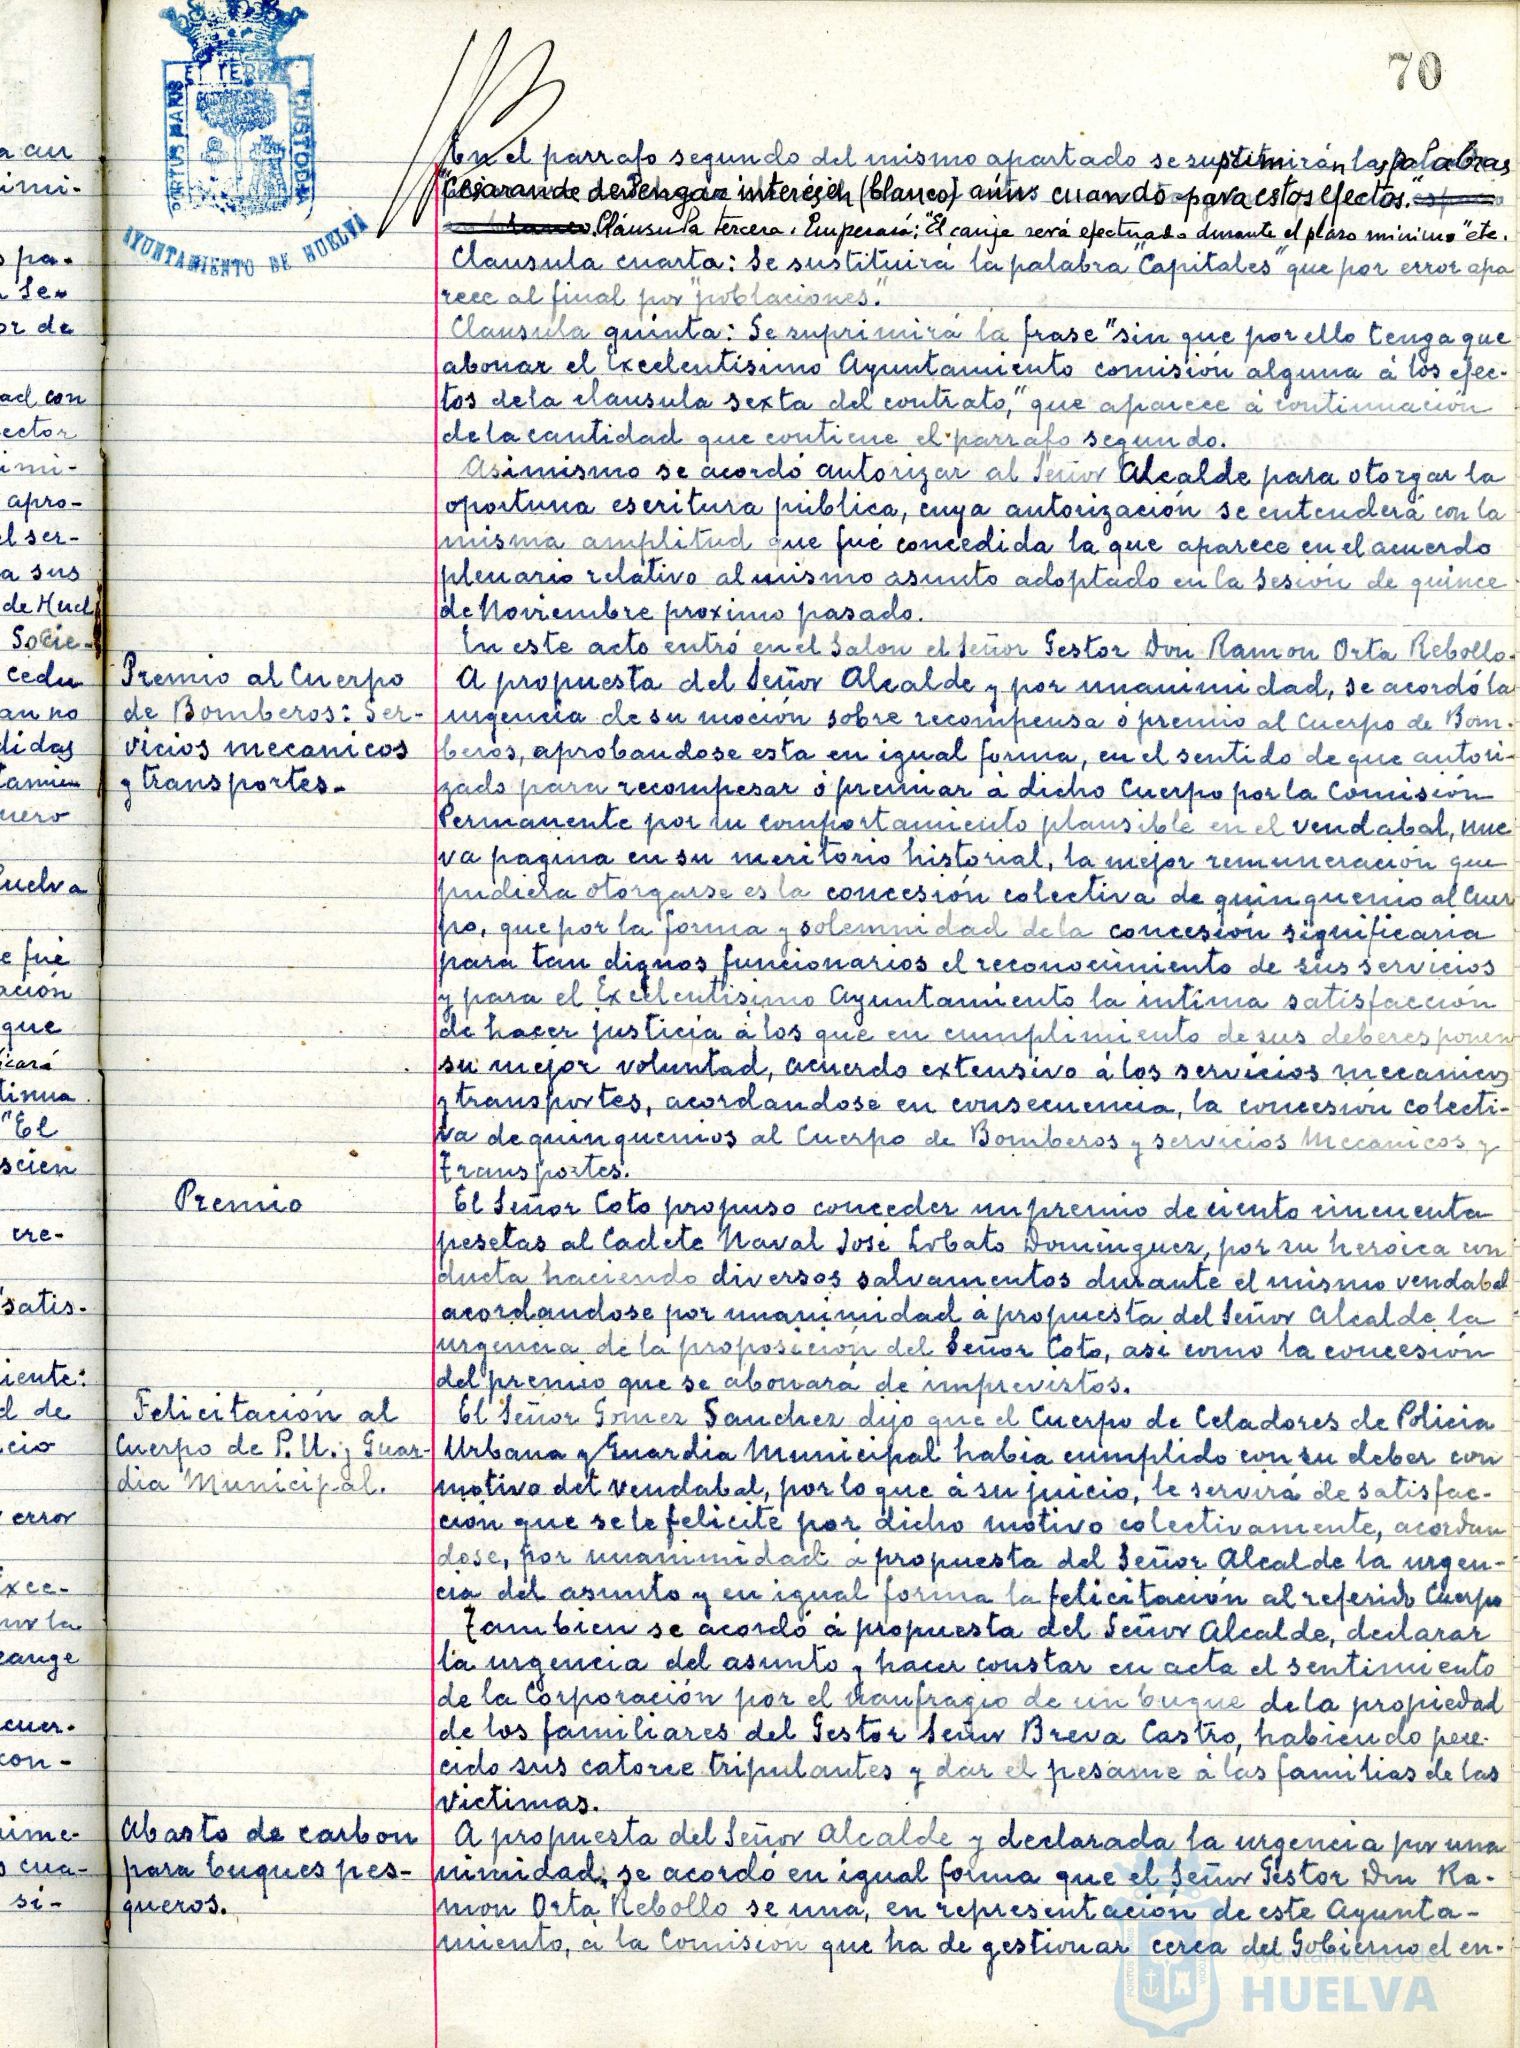 70
PORTUS MARIS
ET TERRAE
CUSTODIA
AYUNTAMIENTO DE HUELVA
En el parrafo segundo del mismo apartado se suprimirán las palabras
"Cesarán de devengar interés, en (blanco) aún cuando para estos efectos."
Cláusula tercera. Empezará; "El canje será efectuado durante el plazo minimo" etc.
Clausula cuarta: Se sustituirá la palabra "Capitales" que por error apa
rece al final por "poblaciones."
Clausula quinta: Se suprimirá la frase "sin que por ello tenga que
abonar el Excelentísimo Ayuntamiento comisión alguna á los efec-
tos de la clausula sexta del contrato," que aparece á continuación
de la cantidad que contiene el parrafo segundo.
Asimismo se acordó autorizar al Señor Alcalde para otorgar la
oportuna escritura pública, cuya autorización se entenderá con la
misma amplitud que fué concedida la que aparece en el acuerdo
plenario relativo al mismo asunto adoptado en la Sesión de quince
de Noviembre proximo pasado.
En este acto entró en el Salon el Señor Gestor Don Ramon Orta Rebollo.
Premio al Cuerpo
de Bomberos: Ser-
vicios mecanicos
y transportes.
A propuesta del Señor Alcalde y por unanimidad, se acordó la
urgencia de su moción sobre recompensa ó premio al Cuerpo de Bom-
beros, aprobandose esta en igual forma, en el sentido de que autori-
zado para recompesar ó premiar á dicho Cuerpo por la Comisión
Permanente por su comportamiento plausible en el vendabal, nue
va pagina en su meritorio historial, la mejor remuneración que
pudiera otorgarse es la concesión colectiva de quinquenio al Cuer
po, que por la forma y solemnidad de la concesión significaria
para tan dignos funcionarios el reconocimiento de sus servicios
y para el Excelentisimo Ayuntamiento la intima satisfacción
de hacer justicia á los que en cumplimiento de sus deberes ponen
su mejor voluntad, acuerdo extensivo á los servicios mecanicos
y transportes, acordandose en consecuencia, la concesión colecti-
va de quinquenios al Cuerpo de Bomberos y servicios Mecanicos y
Transportes.
Premio
El Señor Coto propuso conceder un premio de ciento cincuenta
pesetas al Cadete Naval José Lobato Dominguez, por su heroica con
ducta haciendo diversos salvamentos durante el mismo vendabal
acordandose por unanimidad á propuesta del Señor Alcalde la
urgencia de la proposición del Señor Coto, asi como la concesión
del premio que se abonará de imprevistos.
Felicitación al
Cuerpo de P.U. y Guar-
dia Municipal.
El Señor Gomez Sanchez dijo que el Cuerpo de Celadores de Policia
Urbana y Guardia Municipal habia cumplido con su deber con
motivo del vendabal, por lo que á su juicio, le servirá de satisfac-
ción que se le felicite por dicho motivo colectivamente, acordan
dose, por unanimidad á propuesta del Señor Alcalde la urgen-
cia del asunto y en igual forma la felicitación al referido Cuerpo
Tambien se acordó á propuesta del Señor Alcalde, declarar
la urgencia del asunto y hacer constar en acta el sentimiento
de la Corporación por el naufragio de un buque de la propiedad
de los familiares del Gestor Señor Breva Castro, habiendo pere-
cido sus catorce tripulantes y dar el pesame á las familias de las
victimas.
Abasto de carbon
para buques pes-
queros.
A propuesta del Señor Alcalde y declarada la urgencia por una
nimidad, se acordó en igual forma que el Señor Gestor Don Ra-
mon Orta Rebollo se una, en representación de este Ayunta-
miento, á la Comisión que ha de gestionar cerca del Gobierno el en-
Ayuntamiento de
HUELVA